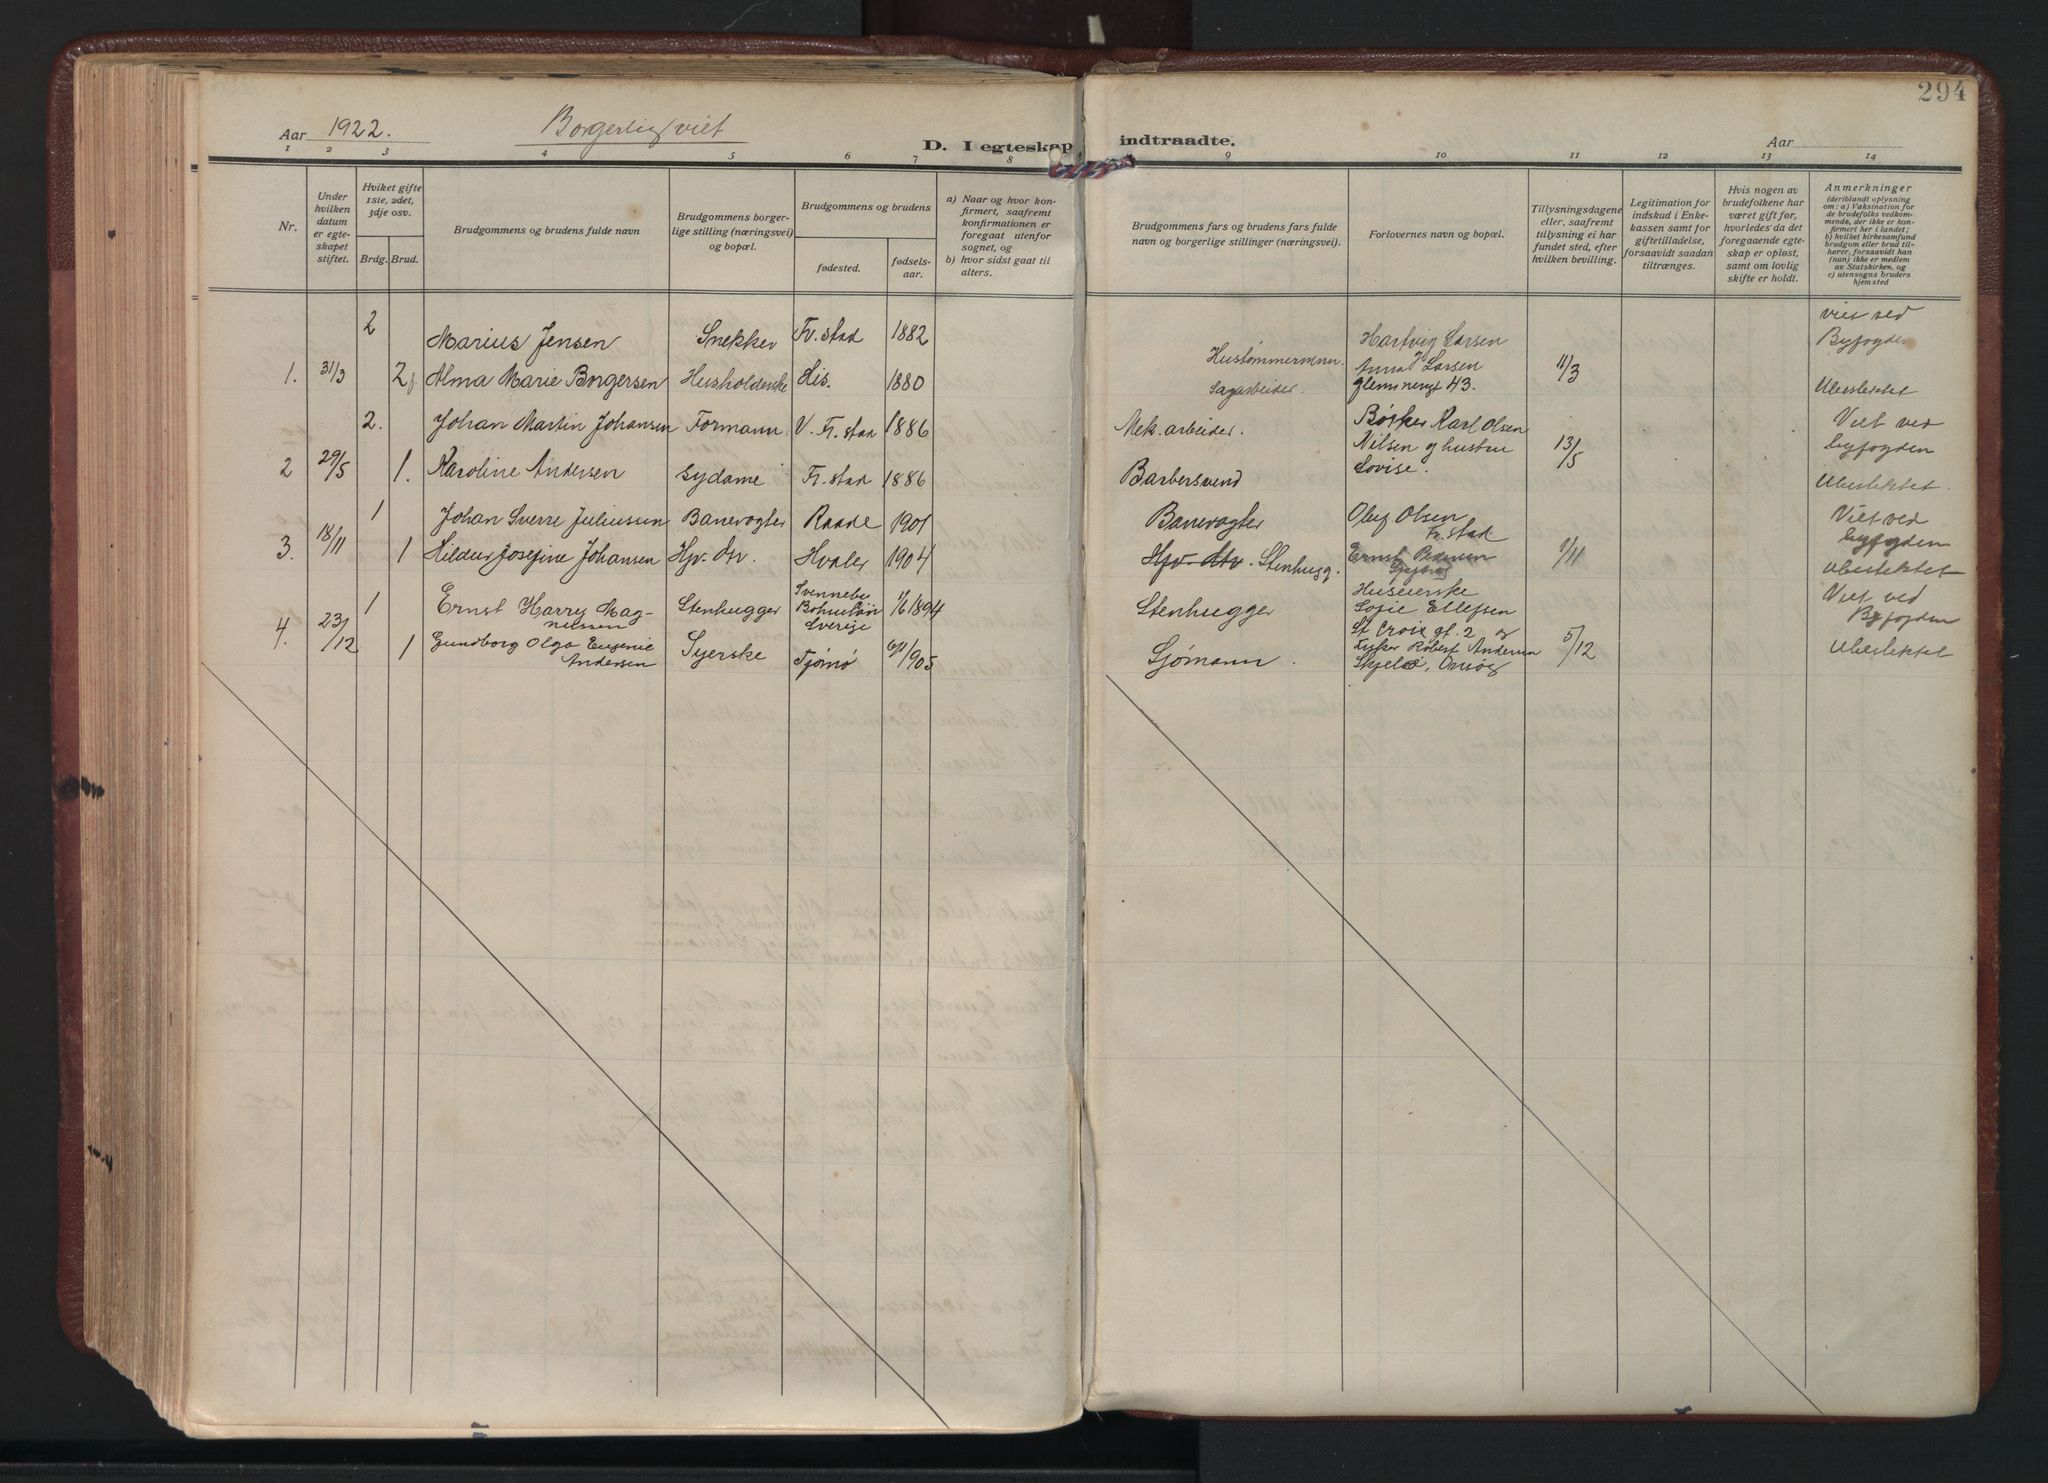 294
Aar 1922.
Borgerlig viet
D. I egteskap indtraadte.
Aar
1 2 3 4 5 6 7 8 9 10 11 12 13 14
Nr.
Under hvilken datum er egteskapet stiftet.
Hviket gifte 1ste, 2det, 3dje osv.
Brdg. Brud.
Brudgommens og brudens fulde navn
Brudgommens borgerlige stilling (næringsvei) og bopæl.
Brudgommens og brudens
fødested.
fødselsaar.
a) Naar og hvor konfirmert, saafremt konfirmationen er foregaat utenfor sognet, og
b) hvor sidst gaat til alters.
Brudgommens fars og brudens fars fulde navn og borgerlige stillinger (næringsvei).
Forlovernes navn og bopæl.
Tillysningsdagene eller, saafremt tillysning ei har fundet sted, efter hvilken bevilling.
Legitimation for indskud i Enkekassen samt for giftetilladelse, forsaavidt saadan tiltrænges.
Hvis nogen av brudefolkene har været gift før, hvorledes da det foregaaende egteskap er opløst, samt om lovlig skifte er holdt.
Anmerkninger
(deriblandt oplysning om: a) Vaksination for de brudefolks vedkommende, der ikke er konfirmert her i landet; b) hvilket kirkesamfund brudgom eller brud tilhører, forsaavidt han (hun) ikke er medlem av Statskirken, og c) utensogns bruders hjemsted
2 Marius Jensen Snekker Fr. stad 1882 Hustømmermann. Hartvig Larsen viet ved Byfogden
1. 31/3 2 Alma Marie Borgersen Husholderske His. 1880 Sagarbeider. Anna Larsen Glemmengt 43. 11/3 Ubeslektet
2. Johan Martin Johansen Formann V. Fr. stad 1886 Mek. arbeider. Karl Olsen Viet ved
2 29/5 1. Karoline Andersen Sydame Fr. stad 1886 Barbersvend Nilsen og hustru Lovise. 13/5 byfogden
Ubeslektet.
1 Johan Sverre Juliussen Banevogter Raade 1901 Banevogter Oluf Olsen Fr. stad Viet ved
3. 18/11 1 Hildur Josefine Johansen Hjv. dtv. Hvaler 1904 Hjv. dtv. Stenhugg. Ernst 1/11 byfogden
ubeslektet
1 Ernst Harry Magnussen Stenhugger Bohuslän Sverige 1/6 1894 Stenhugger Huseierske Sofie Ellefsen Viet ved Byfogden
4. 23/12 1 Gundborg Olga Eugenie Andersen Syerske Tjømø 1905 Sjømann. St Croix gt. 2 og Fisker Robert Andersen Skjelø, Onsøy 5/12 Ubeslektet